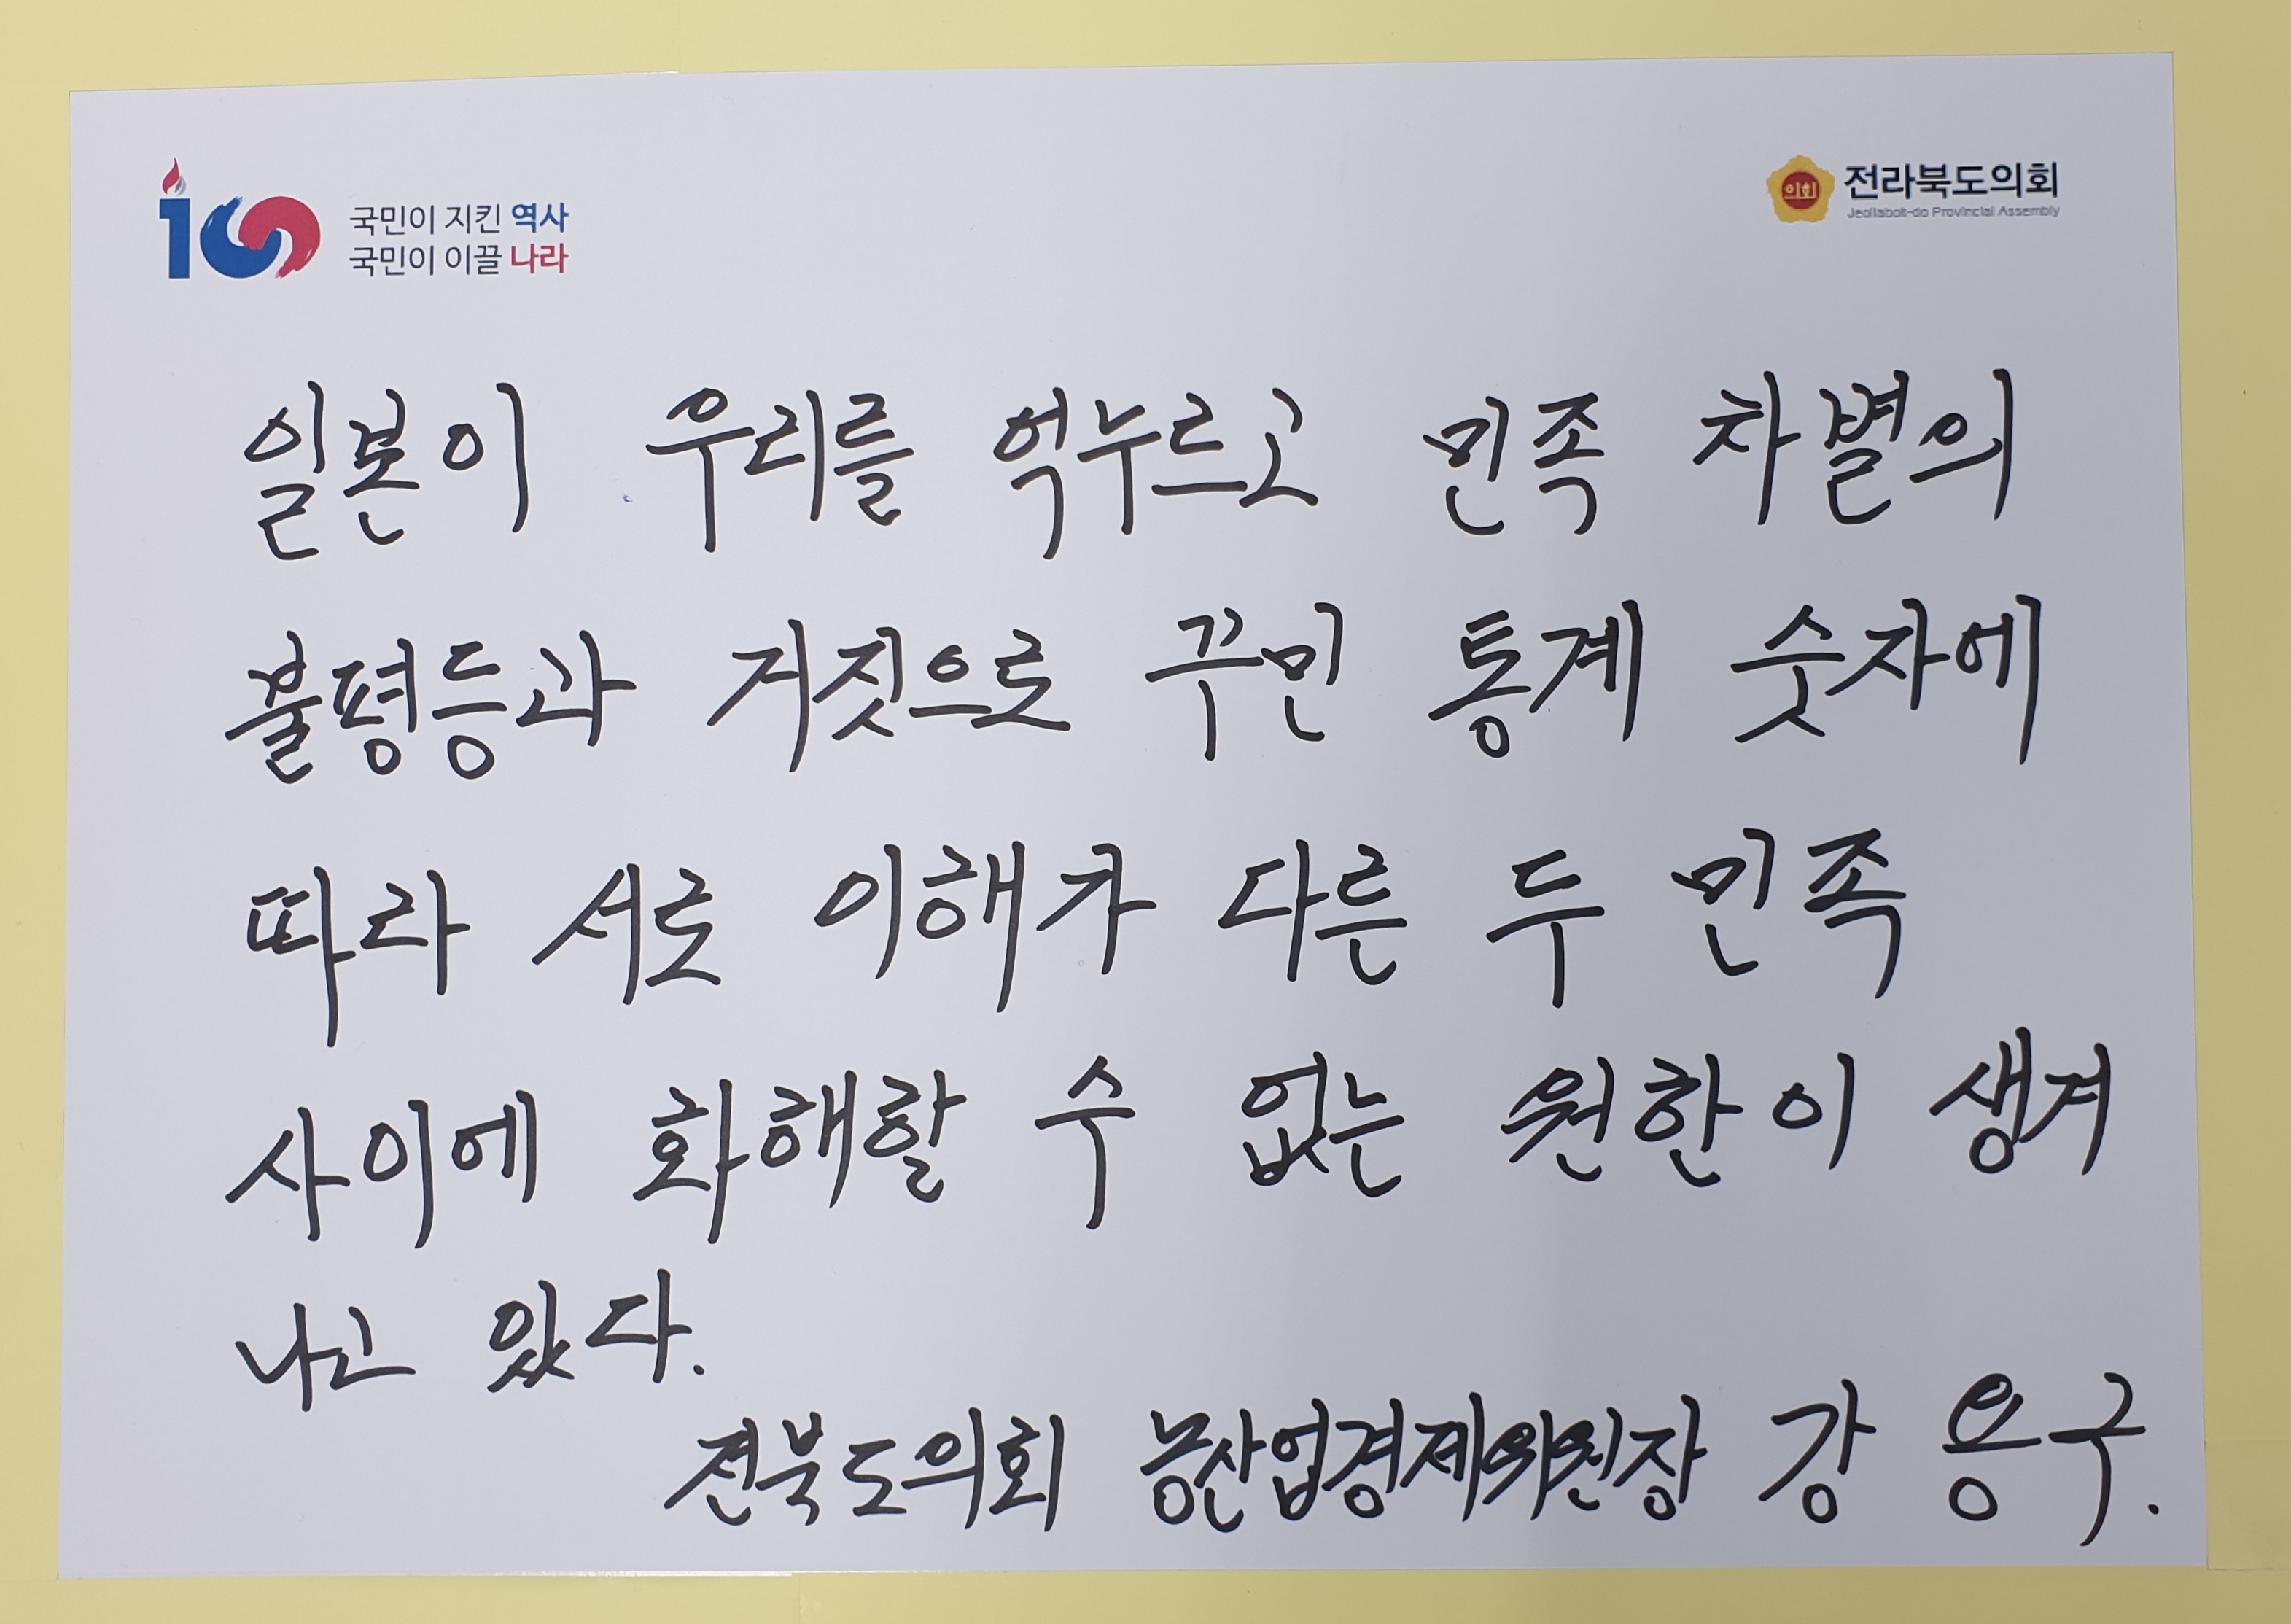 국민이 지킨 역사
국민이 이끌 나라
의회
전라북도의회
Jeollabok-do Provincial Assembly
일본이 우리를 억누르고 민족 차별의
불평등과 거짓으로 꾸민 통계 숫자에
따라 서로 이해가 다른 두 민족
사이에 화해할 수 없는 원한이 생겨
나고 있다.
전북도의회 농산업경제위원장 강 용구.